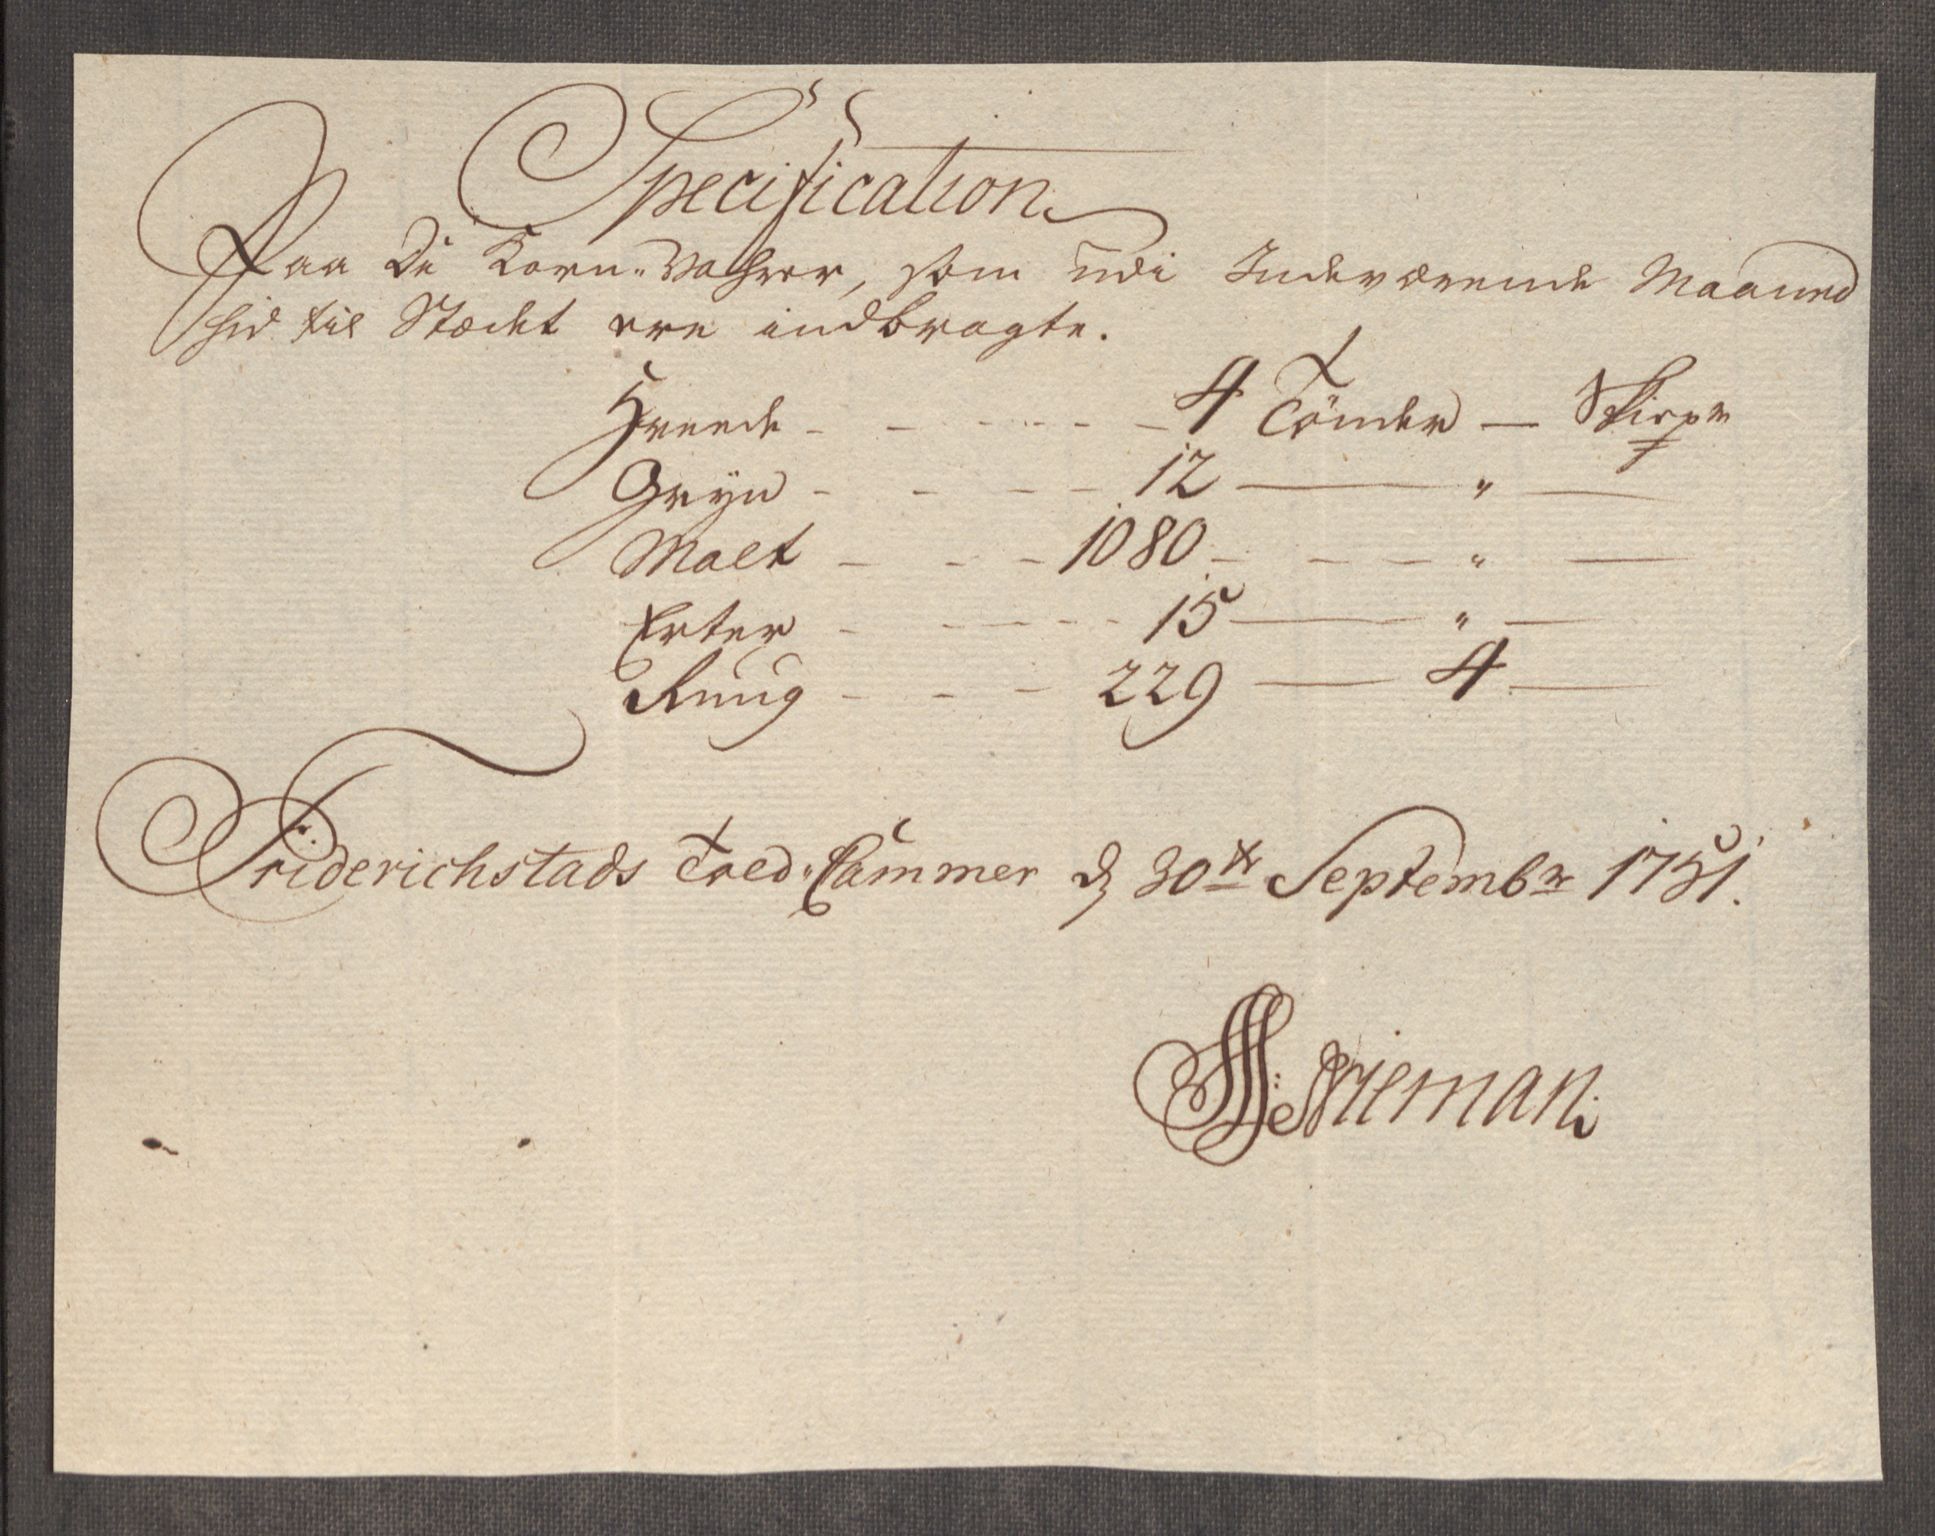 Specification
Paa De Korn-Vahrer, som udi Indeværende Maaned
hid til Stædet ere indbragte.
Hveede - - - - - - 4 Tönder — Skiepr
Gryn - - - - 12 — " —
Malt - - - 1080 - - - " —
Erter - - - - - 15 — " —
Ruug - - - 229 — 4 —
Friderichstads Told-Cammer d 30te Septembr 1751.